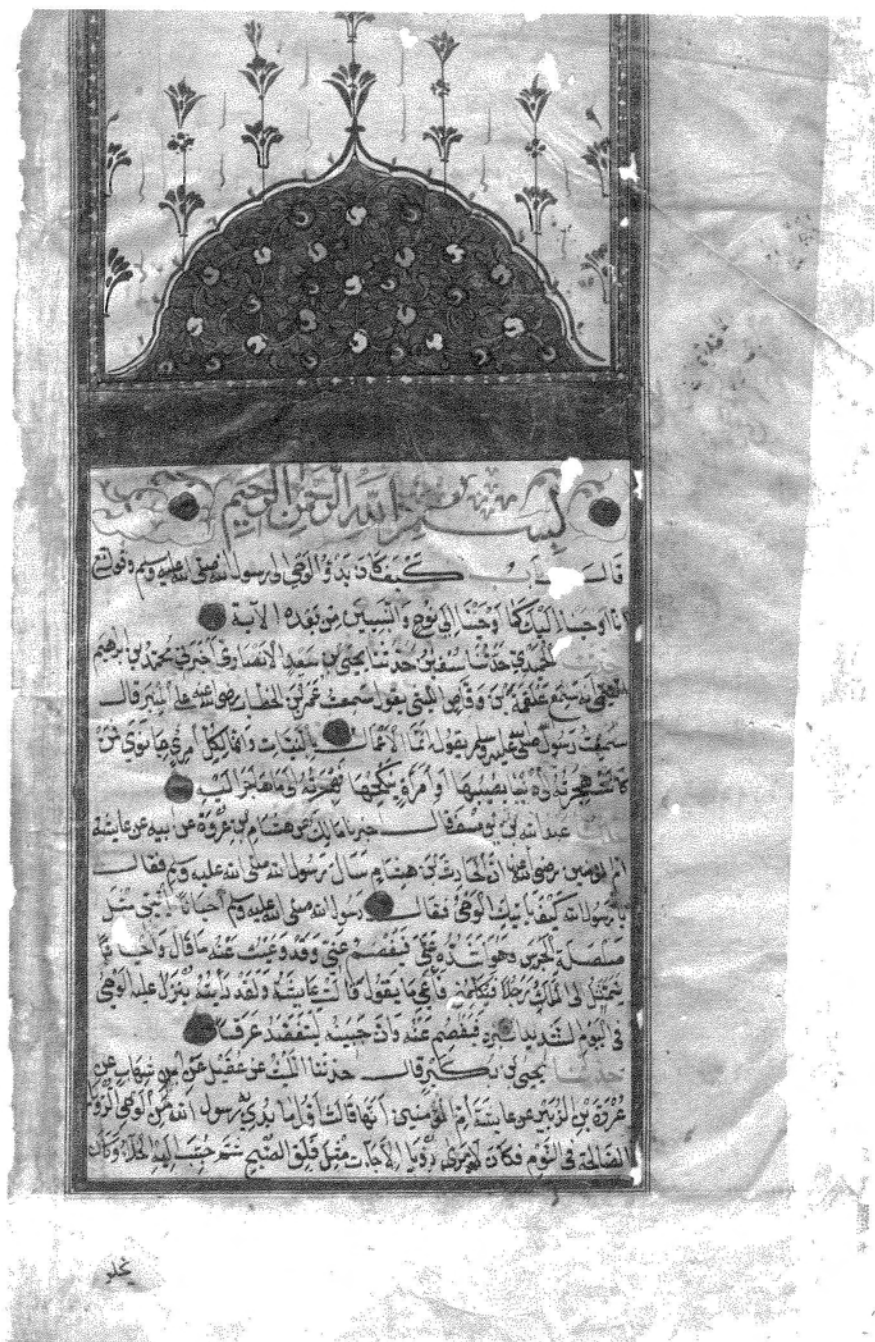 بسم الله الرحمن الرحيم
قال باب كيف كان بدؤ الوحي الى رسول الله صلى الله عليه وسلم وقوله تع
انا اوحينا اليك كما اوحينا الى نوح والنبيين من بعده الآية
حدثنا الحميدي حدثنا سفين حدثنا يحيى بن سعيد الانصاري اخبرني محمد بن ابرهيم
التيمي انه سمع علقمة بن وقاص الليثي يقول سمعت عمر بن الخطاب رضي الله عنه على المنبر قال
سمعت رسول الله صلى الله عليه وسلم يقول انما الاعمال بالنيات وانما لكل امرئ ما نوى فمن
كانت هجرته الى دنيا يصيبها او امرأة ينكحها فهجرته الى ما هاجر اليه
حدثنا عبد الله بن يوسف قال اخبرنا مالك عن هشام بن عروة عن ابيه عن عايشة
ام المومنين رضي الله عنها ان الحارث بن هشام سال رسول الله صلى الله عليه وسلم فقال
يا رسول الله كيف ياتيك الوحي فقال رسول الله صلى الله عليه وسلم احيانا ياتيني مثل
صلصلة الجرس وهو اشده علي فيفصم عني وقد وعيت عنه ما قال واحيانا
يتمثل لي الملك رجلا فيكلمني فاعي ما يقول قالت عايشة ولقد رأيته ينزل عليه الوحي
في اليوم الشديد البرد فيفصم عنه وان جبينه ليتفصد عرقا
حدثنا يحيى بن بكير قال حدثنا الليث عن عقيل عن ابن شهاب عن
عروة بن الزبير عن عايشة أم المؤمنين انها قالت أول ما بدئ به رسول الله من الوحي الرؤيا
الصالحة في النوم فكان لا يرى رؤيا الا جات مثل فلق الصبح ثم حبب اليه الخلاء وكان
يخلو